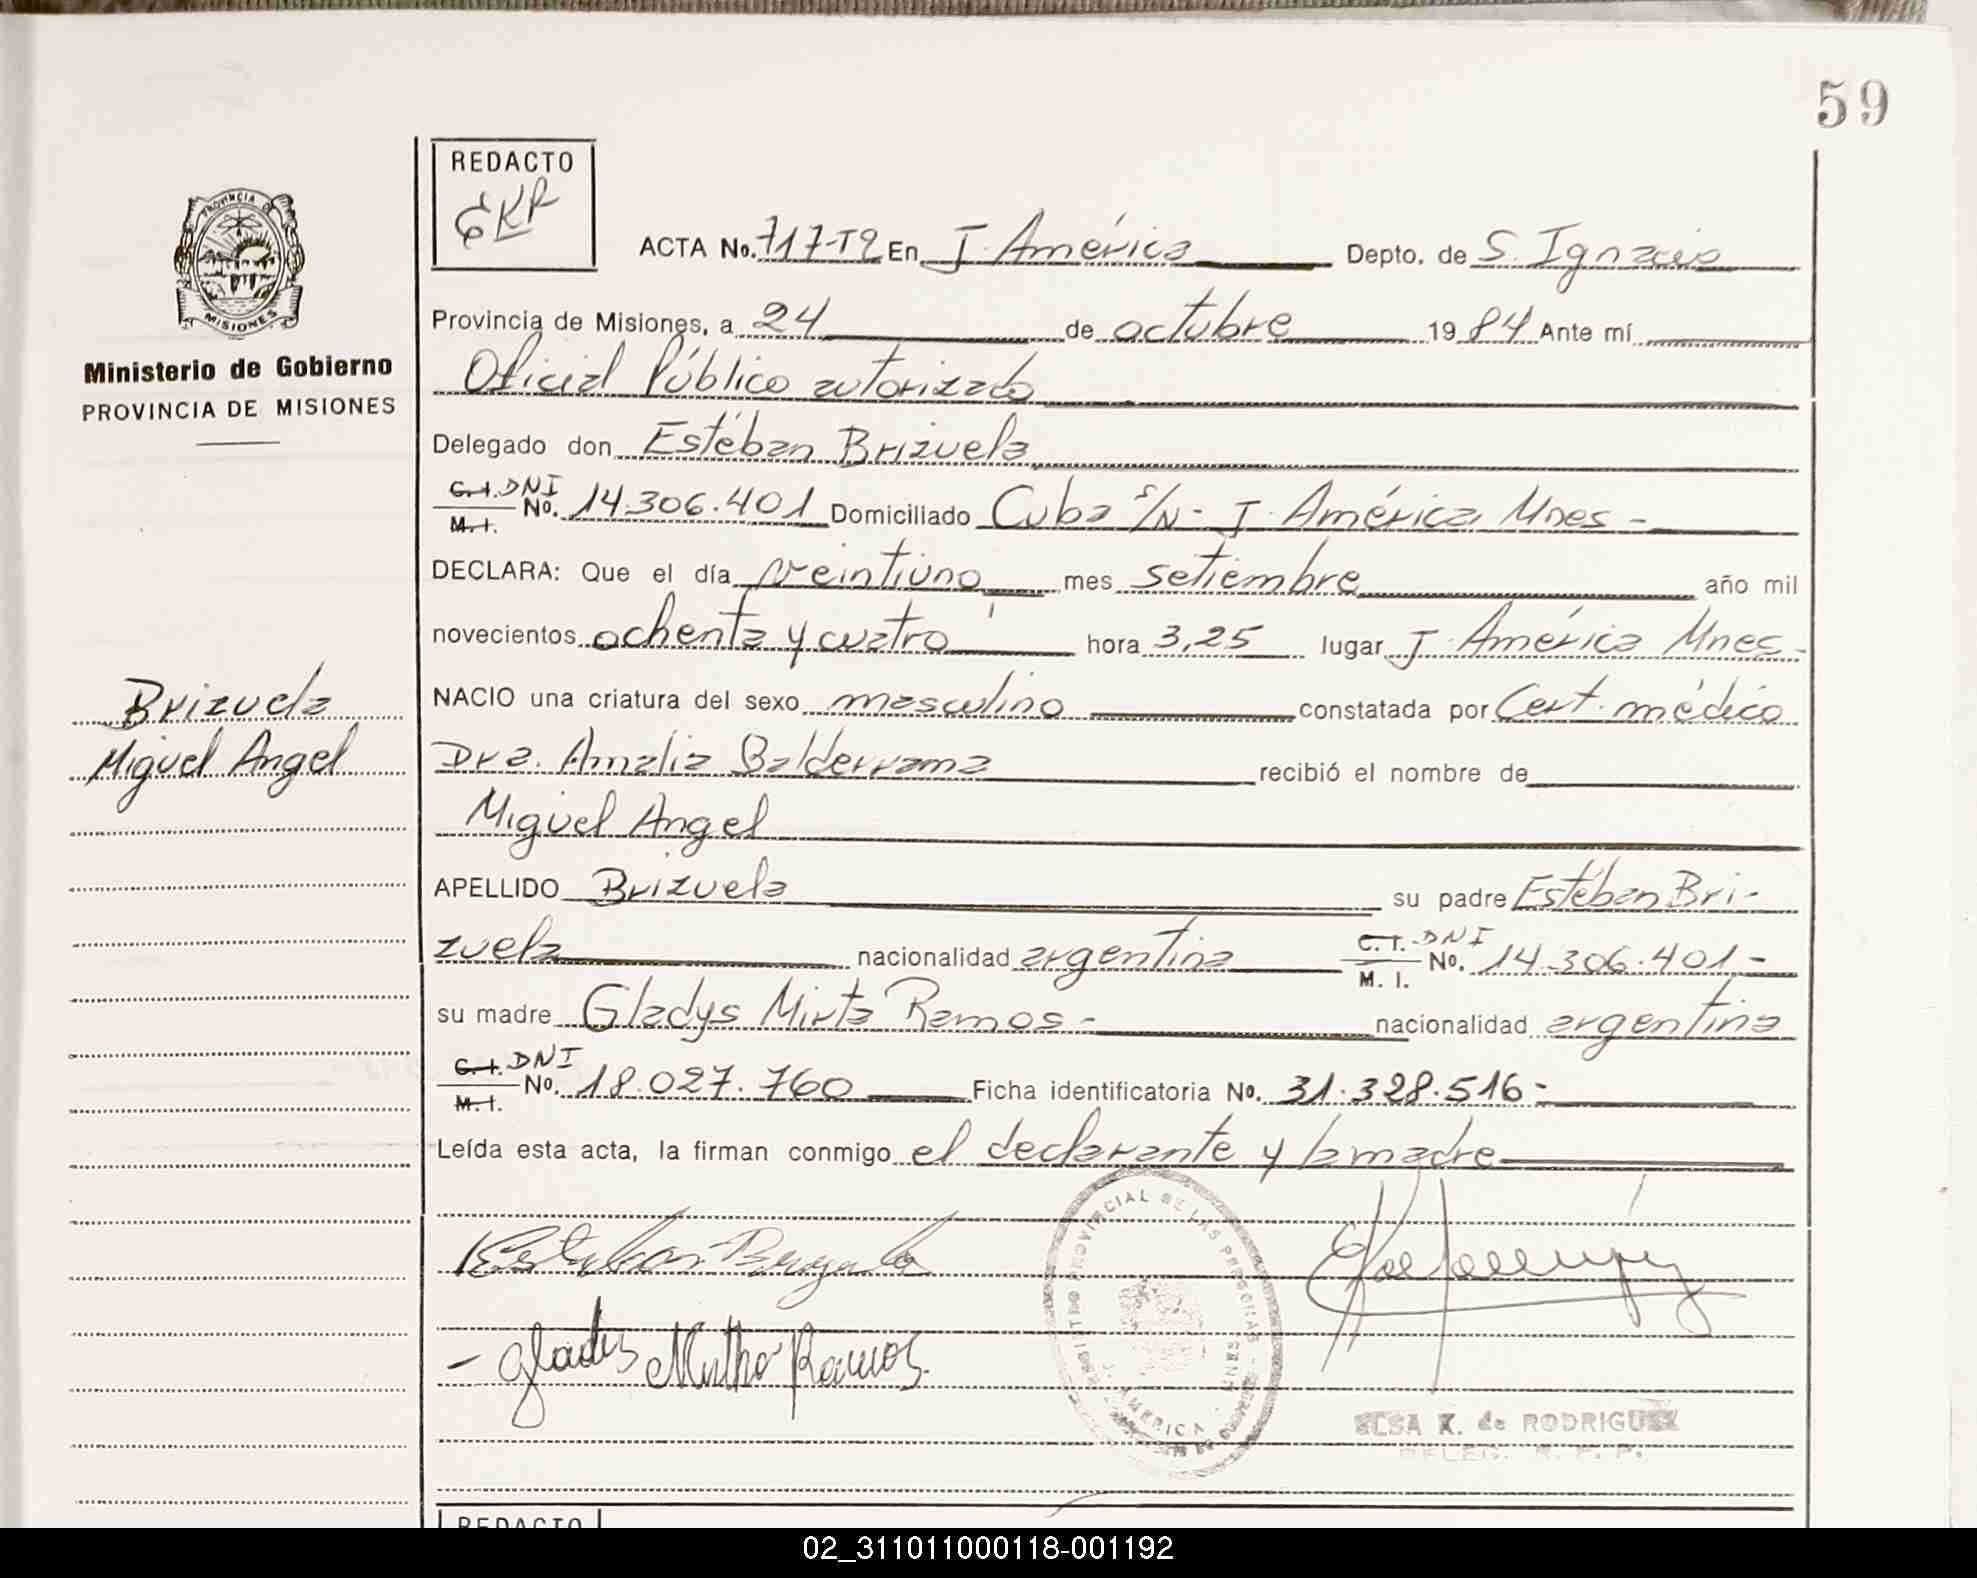 59
REDACTO
EKR
ACTA No. 717-T2 En J. América Depto. de S. Ignacio
PROVINCIA DE
MISIONES
Provincia de Misiones, a 24 de octubre 1984 Ante mí
Ministerio de Gobierno
PROVINCIA DE MISIONES
Oficial Público autorizado
Delegado don Estéban Brizuela
C.I. DNI
M.I. No. 14.306.401 Domiciliado Cuba s/N - J. América, Mnes -
DECLARA: Que el día veintiuno mes setiembre año mil
novecientos ochenta y cuatro hora 3,25 lugar J. América Mnes-
Brizuela
Miguel Angel
NACIO una criatura del sexo masculino constatada por Cert. médico
Dra. Amalia Balderrama recibió el nombre de
Miguel Angel
APELLIDO Brizuela su padre Estéban Bri-
zuela nacionalidad argentina C.I. DNI M. I. No. 14.306.401-
su madre Gladys Mirta Ramos- nacionalidad argentina
C.I. DNI
M.I. No. 18.027.760 Ficha identificatoria No. 31.328.516-
Leída esta acta, la firman conmigo el declarante y la madre
REGISTRO PROVINCIAL DE LAS PERSONAS
AMERICA
Gladis Mirtha Ramos.
ELSA K. de RODRIGUEZ
DELEG. R. P. P.
REDACTO
02_311011000118-001192